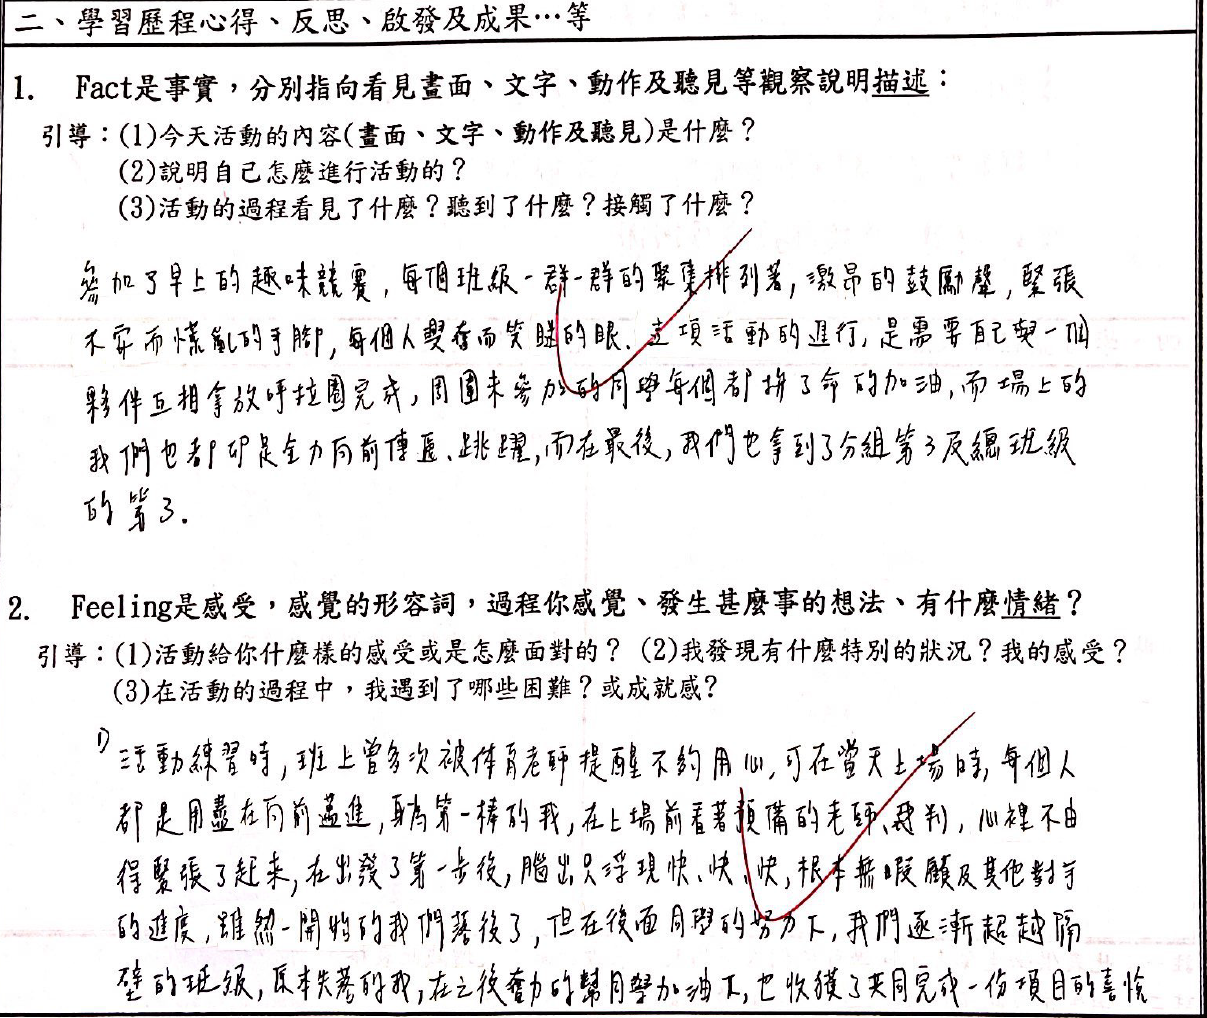 二、學習歷程心得、反思、啟發及成果…等
1. Fact是事實，分別指向看見畫面、文字、動作及聽見等觀察說明描述：
引導：(1)今天活動的內容(畫面、文字、動作及聽見)是什麼？
(2)說明自己怎麼進行活動的？
(3)活動的過程看見了什麼？聽到了什麼？接觸了什麼？
參加了早上的趣味競賽，每個班級一群一群的聚集排列著，激昂的鼓勵聲，緊張
不安而慌亂的手腳，每個人興奮而笑瞇的眼、這項活動的進行，是需要自己與一個
夥伴互相拿放呼拉圈完成，周圍未參加的同學每個都拚了命的加油，而場上的
我們也都卯足全力向前傳遞、跳躍，而在最後，我們也拿到了分組第3及總班級
的第3.
2. Feeling是感受，感覺的形容詞，過程你感覺、發生甚麼事的想法、有什麼情緒？
引導：(1)活動給你什麼樣的感受或是怎麼面對的？ (2)我發現有什麼特別的狀況？我的感受？
(3)在活動的過程中，我遇到了哪些困難？或成就感？
1) 活動練習時，班上曾多次被體育老師提醒不夠用心，可在當天上場時，每個人
都是用盡在向前邁進，身為第一棒的我，在上場前看著預備的老師、裁判，心裡不由
得緊張了起來，在出發了第一步後，腦出只浮現快、快、快，根本無暇顧及其他對手
的進度，雖然一開始的我們落後了，但在後面同學的努力下，我們逐漸超越隔
壁的班級，原本失落的我，在之後奮力的幫同學加油下，也收獲了共同完成一份項目的喜悅